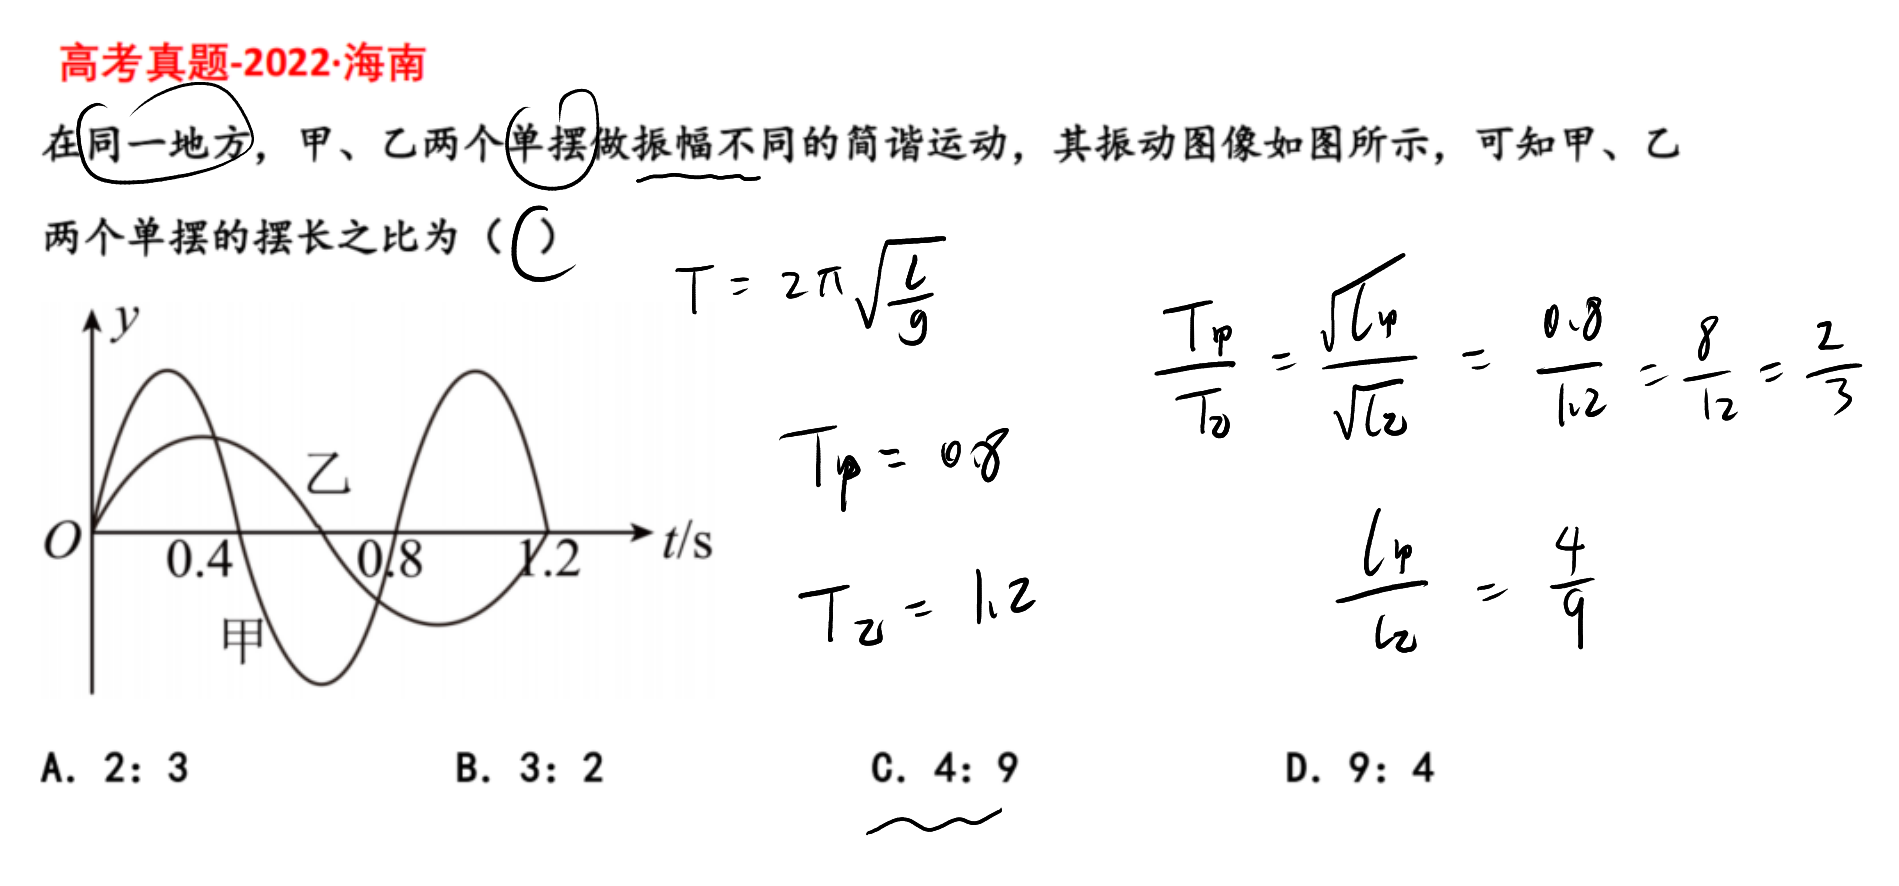 高考真题-2022·海南
在同一地方，甲、乙两个单摆做振幅不同的简谐运动，其振动图像如图所示，可知甲、乙
两个单摆的摆长之比为（C）
T = 2π√(l/g)
T甲/T乙 = √l甲/√l乙 = 0.8/1.2 = 8/12 = 2/3
T甲 = 0.8
T乙 = 1.2
l甲/l乙 = 4/9
y
乙
O
0.4
0.8
1.2
t/s
甲
A. 2：3 B. 3：2 C. 4：9 D. 9：4